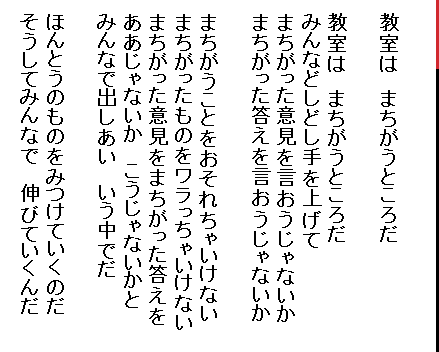 教室は　まちがうところだ
教室は　まちがうところだ
みんなどしどし手を上げて
まちがった意見を言おうじゃないか
まちがった答えを言おうじゃないか
まちがうことをおそれちゃいけない
まちがったものをワラっちゃいけない
まちがった意見をまちがった答えを
ああじゃないか　こうじゃないかと
みんなで出しあい　いう中でだ
ほんとうのものをみつけていくのだ
そうしてみんなで　伸びていくんだ